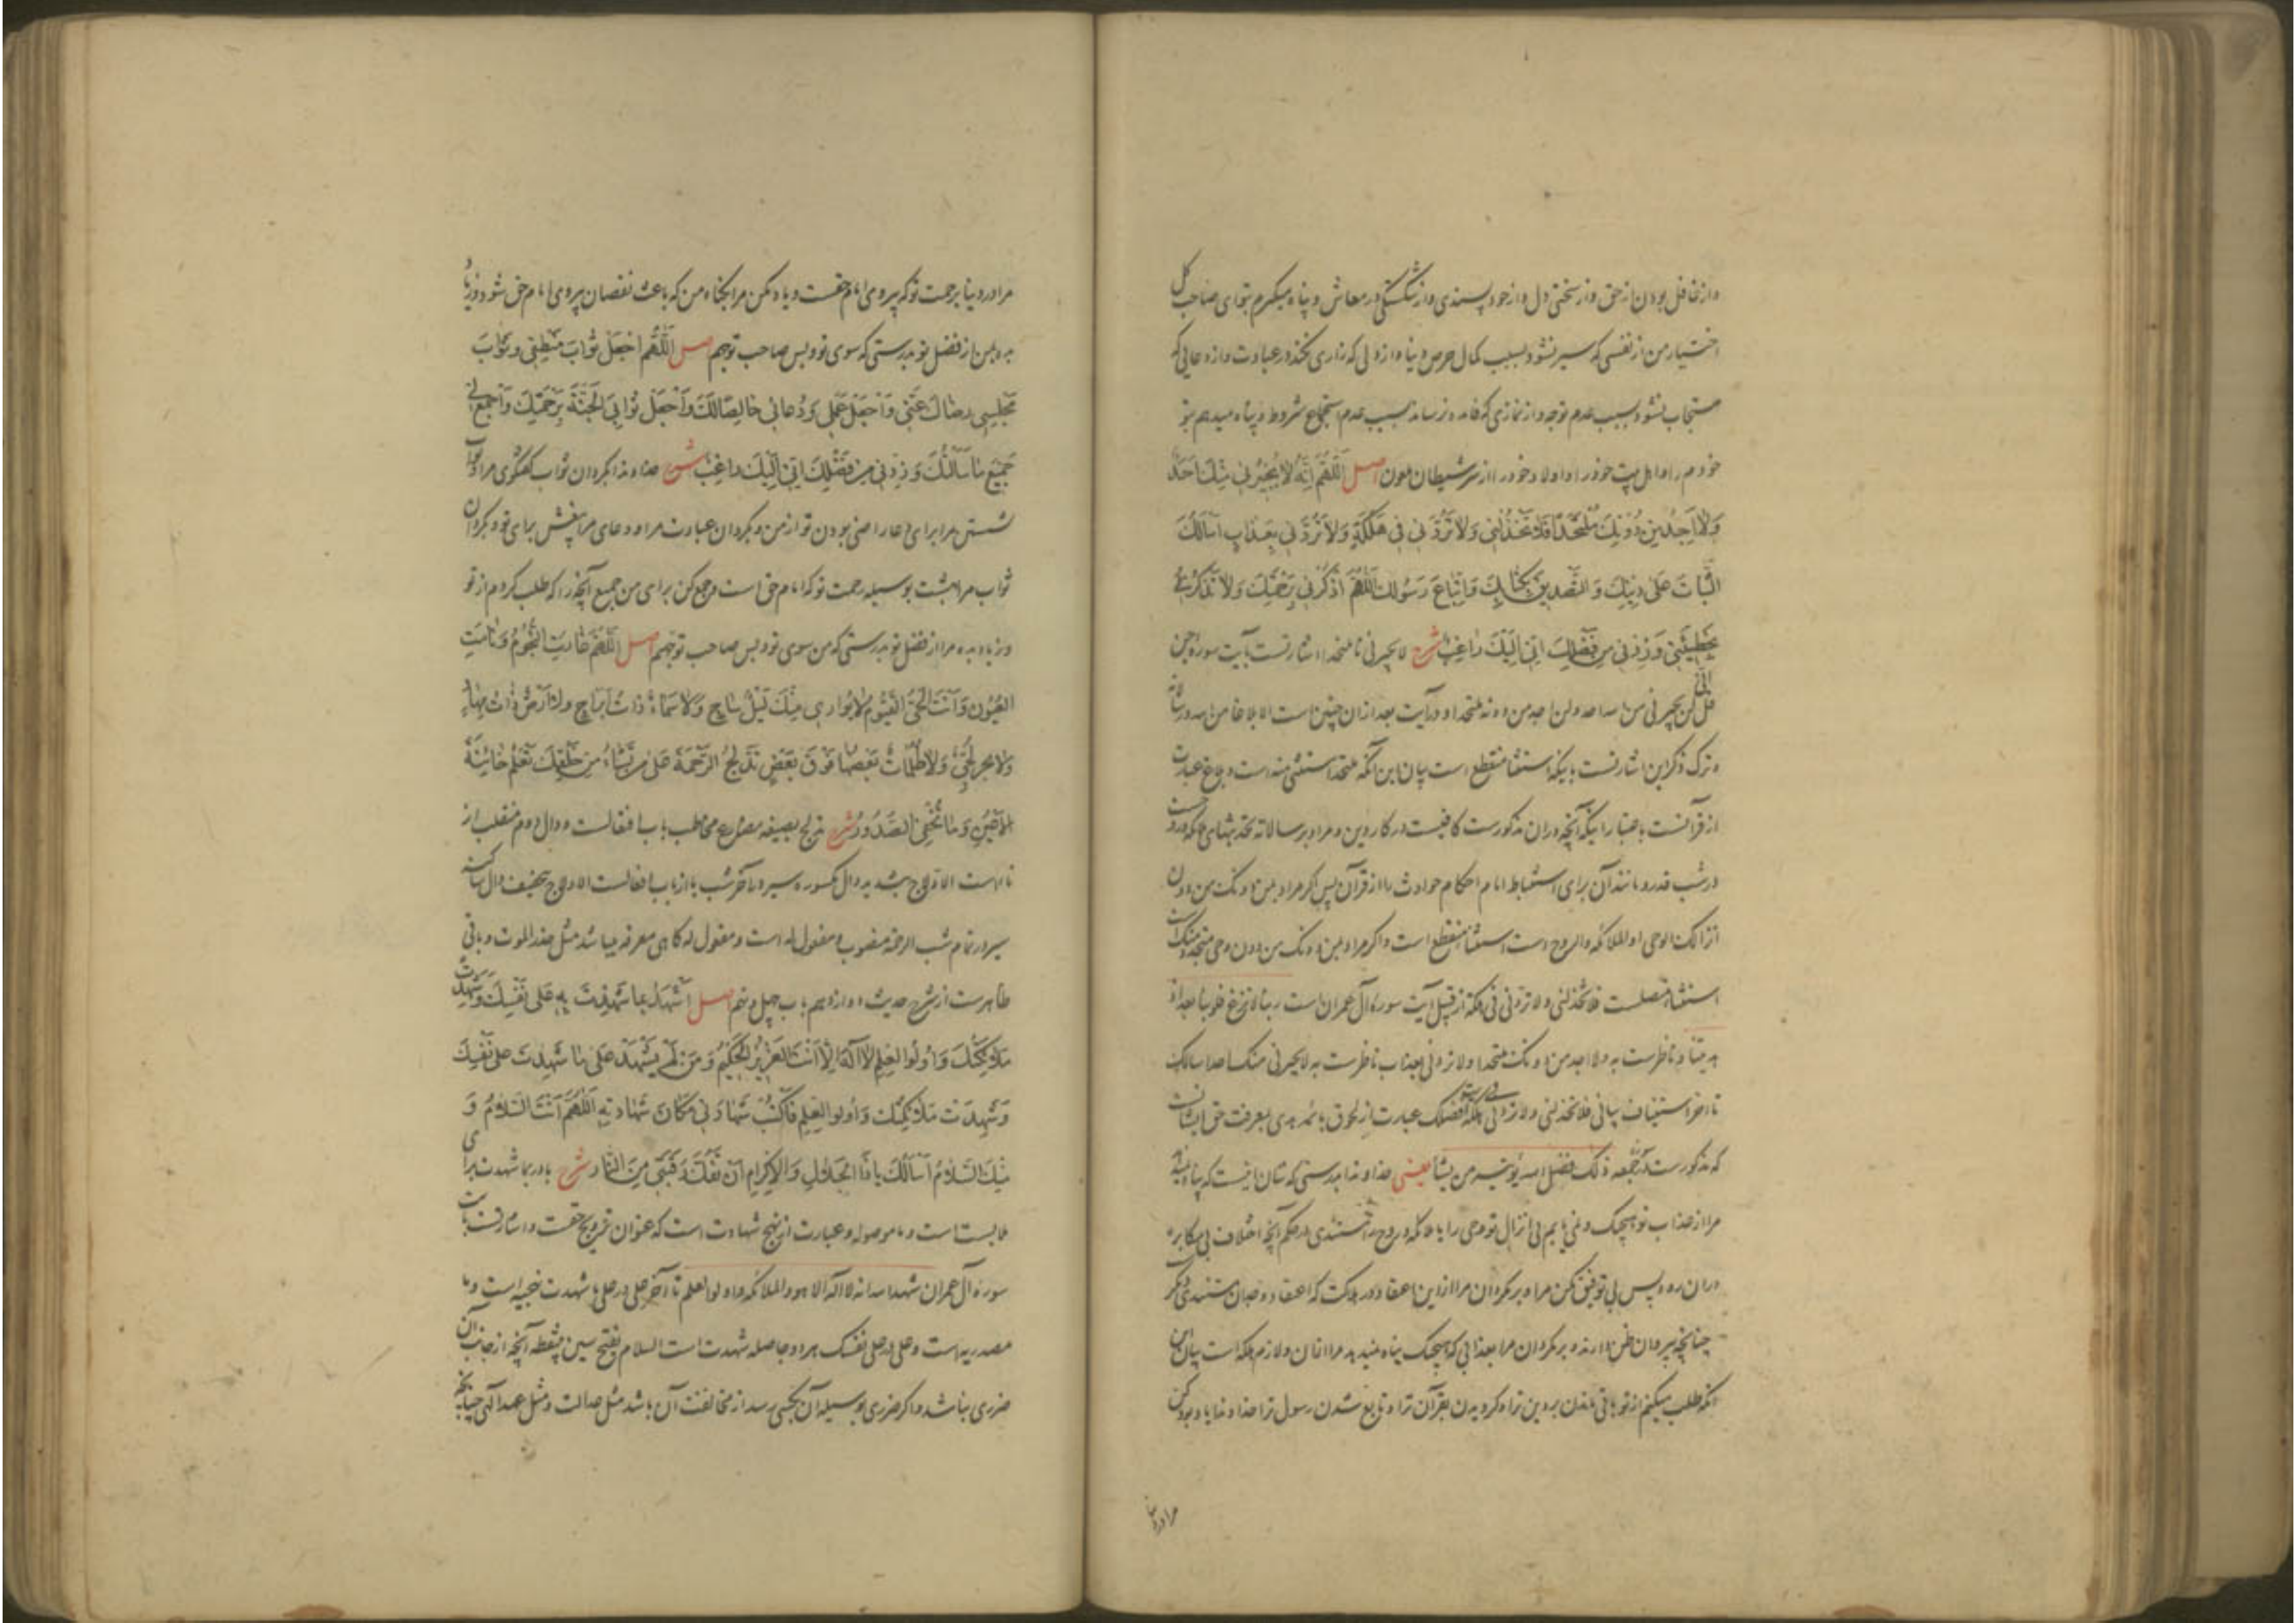 واز غافل بودن از حق واز سختی دل واز خود پسندی واز شکستگی در معاش و پناه میگیرم بتو ای صاحب کل
اختیار من از نفسی که سیر نشود بسبب کمال حرص و پناه از دلی که زاری نکند در عبادت واز دعایی که
مستجاب نشود بسبب عدم توجه واز نمازی که فایده نرساند بسبب عدم استجماع شروط و پناه میدهم بتو
خودم را واهل بیت خود را واولاد خود را از شر شیطان ملعون اصل اَللّهُمَّ اِنَّهُ لا یُجیرُنی مِنْكَ اَحَدٌ
وَلا اَجِدُ مِنْ دُونِكَ مُلْتَحَدًا فَلا تَخْذُلْنی وَلا تَرُدَّنی فی هَلَكَةٍ وَلا تَرُدَّنی بِعَذابٍ اَسْأَلُكَ
الثَّباتَ عَلی دینِكَ وَالتَّصْدیقَ بِكِتابِكَ وَاتِّباعَ رَسُولِكَ اَللّهُمَّ اذْكُرْنی بِرَحْمَتِكَ وَلا تَذْكُرْنی
بِخَطیئَتی وَزِدْنی مِنْ فَضْلِكَ اِنّی اِلَیْكَ راغِبٌ شرح لا یجیرنی تا ملتحدا اشارتست بآیت سوره جن
قل انی لن یجیرنی من الله احد ولن اجد من دونه ملتحدا ودر آیت بعد ازان چنین است الا بلاغا من الله ورسالاته
وترک ذکر این اشارتست باینکه استثنا منقطع است بیان این آنکه ملتحدا مستثنی منه است وبلاغ عبارت
از قرآنست باعتبار اینکه آنچه دران مذکورست کافیست در کار دین ومراد برسالاته
در شب قدر ومانند آن برای استنباط امام احکام حوادث را از قرآن پس اگر مراد بمن دونک من دون
انزالک الوحی او الملائکه والروح است استثنا منقطع است واگر مراد بمن دونک من دون وحی متجدد منک است
استثنا متصلست فلا تخذلنی ولا تردنی فی هلکة از قبیل آیت سوره آل عمران است ربنا لا تزغ قلوبنا بعد اذ
هدیتنا وناظرست به ولا اجد من دونک ملتحدا ولا تردنی بعذاب ناظرست به لا یجیرنی منک احد اسالک
تا آخر استیناف بیانی فلا تخذلنی ولا تردنی فی هلکة است فضلک عبارت از لحوق بائمه هدی بمعرفت حق ایشانست
که مذکورست در سوره جمعه ذلک فضل الله یؤتیه من یشا یعنی خداوندا بدرستی که شان اینست که پناه نمیدهد
مرا از عذاب تو هیچیک ونمی یابم بی انزال تو وحی را یا ملائکه وروح را مستندی در حکم آنچه اختلاف بی مکابره
دران رود پس بی توفیق مکن مرا وبرمگردان مرا از این اعتقاد در هلاکت که اعتقاد وجدان مستندی دیگر
چنانچه پیروان ظن دارند وبرمگردان مرا بعذابی که هیچیک پناه نمیدهد مرا ازان ولازم هلکه است بیان این
آنکه طلب میکنم از تو باقی ماندن بر دین ترا وگرویدن بقرآن ترا وتابع شدن رسول ترا خداوندا یاد کن
مرا در دنیا
مرا در دنیا برحمت تو که پیروی امام حقست ویاد مکن مرا بگناه من که باعث نقصان پیروی امام حق شود وزیاد
بده بمن از فضل تو بدرستی که سوی تو وبس صاحب توجهم اصل اَللّهُمَّ اجْعَلْ ثَوابَ مَنْطِقی وَثَوابَ
مَجْلِسی رِضاكَ عَنّی وَاجْعَلْ عَمَلی وَدُعائی خالِصًا لَكَ وَاجْعَلْ ثَوابِیَ الْجَنَّةَ بِرَحْمَتِكَ وَاجْمَعْ لی
جَمیعَ ما سَأَلْتُكَ وَزِدْنی مِنْ فَضْلِكَ اِنّی اِلَیْكَ راغِبٌ شرح خداوندا بگردان ثواب گفتگوی مرا وثواب
نشستن مرا برای دعا راضی بودن تو از من وبگردان عبادت مرا ودعای مرا بیغش برای تو وبگردان
ثواب مرا بهشت بوسیله رحمت تو که امام حق است وجمع کن برای من جمیع آنچه را که طلب کردم از تو
وزیاد بده مرا از فضل تو بدرستی که من سوی تو وبس صاحب توجهم اصل اَللّهُمَّ غارَتِ النُّجُومُ وَنامَتِ
الْعُیُونُ وَاَنْتَ الْحَیُّ الْقَیُّومُ لا یُواری مِنْكَ لَیْلٌ ساجٍ وَلا سَماءٌ ذاتُ اَبْراجٍ وَلا اَرْضٌ ذاتُ مِهادٍ
وَلا بَحْرٌ لُجِّیٌّ وَلا ظُلُماتٌ بَعْضُها فَوْقَ بَعْضٍ تُدْلِجُ الرَّحْمَةَ عَلی مَنْ تَشاءُ مِنْ خَلْقِكَ تَعْلَمُ خائِنَةَ
الْاَعْیُنِ وَما تُخْفِی الصُّدُورُ شرح تدلج بصیغه مضارع مخاطب باب افتعالست ودال دوم منقلب از
تا است الادلاج بتشدید دال مکسوره سیر در آخر شب یا از باب افعالست الادلاج بتخفیف دال ساکنه
سیر در تمام شب الرحمة منصوب ومفعول له است ومفعول له گاهی معرفه میباشد مثل حذر الموت وباقی
ظاهرست از شرح حدیث دوازدهم باب چهل ونهم اصل اَشْهَدُ بِما شَهِدْتَ بِهِ عَلی نَفْسِكَ وَشَهِدَتْ
مَلائِكَتُكَ وَاُولُوا الْعِلْمِ لا اِلهَ اِلّا اَنْتَ الْعَزیزُ الْحَكیمُ وَمَنْ لَمْ یَشْهَدْ عَلی ما شَهِدْتَ عَلی نَفْسِكَ
وَشَهِدَتْ مَلائِكَتُكَ وَاُولُوا الْعِلْمِ فَاكْتُبْ شَهادَتی مَكانَ شَهادَتِهِ اَللّهُمَّ اَنْتَ السَّلامُ وَ
مِنْكَ السَّلامُ اَسْأَلُكَ یا ذَا الْجَلالِ وَالْاِكْرامِ اَنْ تَفُكَّ رَقَبَتی مِنَ النّارِ شرح با در بما شهدت برای
ملابست است وما موصوله وعبارت از نهج شهادت است که عنوان ترویج حقست واشارتست بآیت
سوره آل عمران شهد الله انه لا اله الا هو والملائکه واولوا العلم تا آخر علی در علی ما شهدت نهجیه است وما
مصدریه است وعلی در علی نفسک هر دو جا صله شهدت است السلام بفتح سین بینقطه آنچه از جانب آن
ضرری نباشد واگر ضرری بوسیله آن بکسی رسد از مخالفت آن باشد مثل عدالت ومثل عهد الهی چنانچه